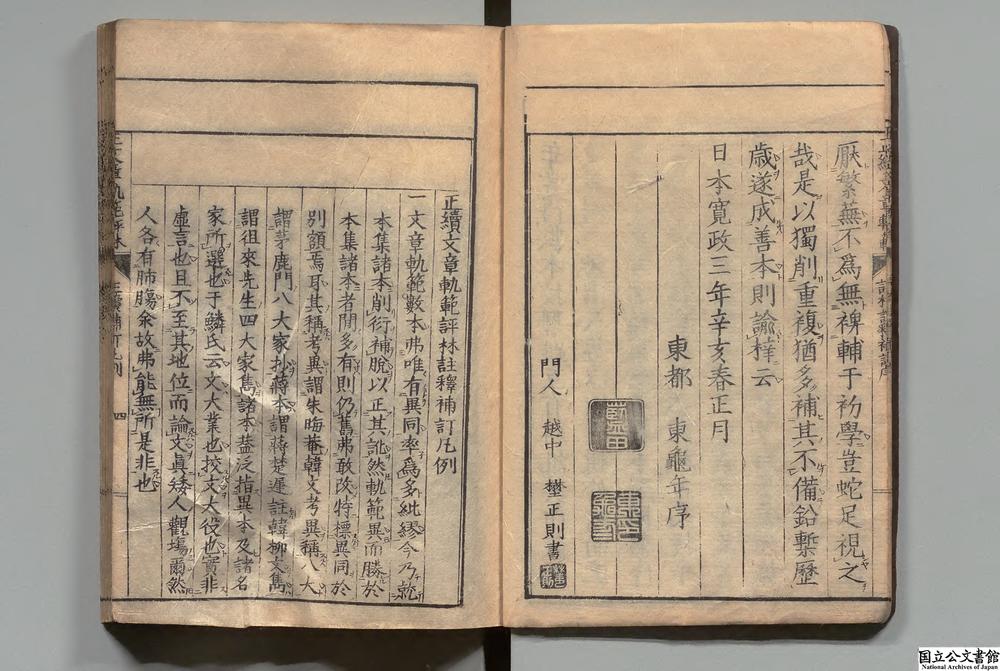 厭繁蕪不爲無裨輔于初學豈蛇足視之
哉是以獨削重複猶多補其不備鉛槧歷
歳遂成善本則諭梓云
日本寛政三年辛亥春正月
東都 東龜年序
藍田
東龜年
門人 越中 埜正則書
正續文章軌範評林註釋補訂凡例
一文章軌範數本弗唯有異同率爲多紕繆今乃就
本集諸本削衍補脱以正其訛然軌範異而勝於
本集諸本者間多有則仍舊弗敢改特標異同於
別額焉耳其稱考異謂朱晦菴韓文考異稱八大
謂茅鹿門八大家抄蔣本謂蔣楚遲註韓柳文雋
謂徂來先生四大家雋諸本葢泛指異本及諸名
家所選也于鱗氏云文大業也挍文大役也實非
虚言也且不至其地位而論文眞矮人觀塲爾然
人各有肺腸余故弗能無所是非也
四
国立公文書館
National Archives of Japan